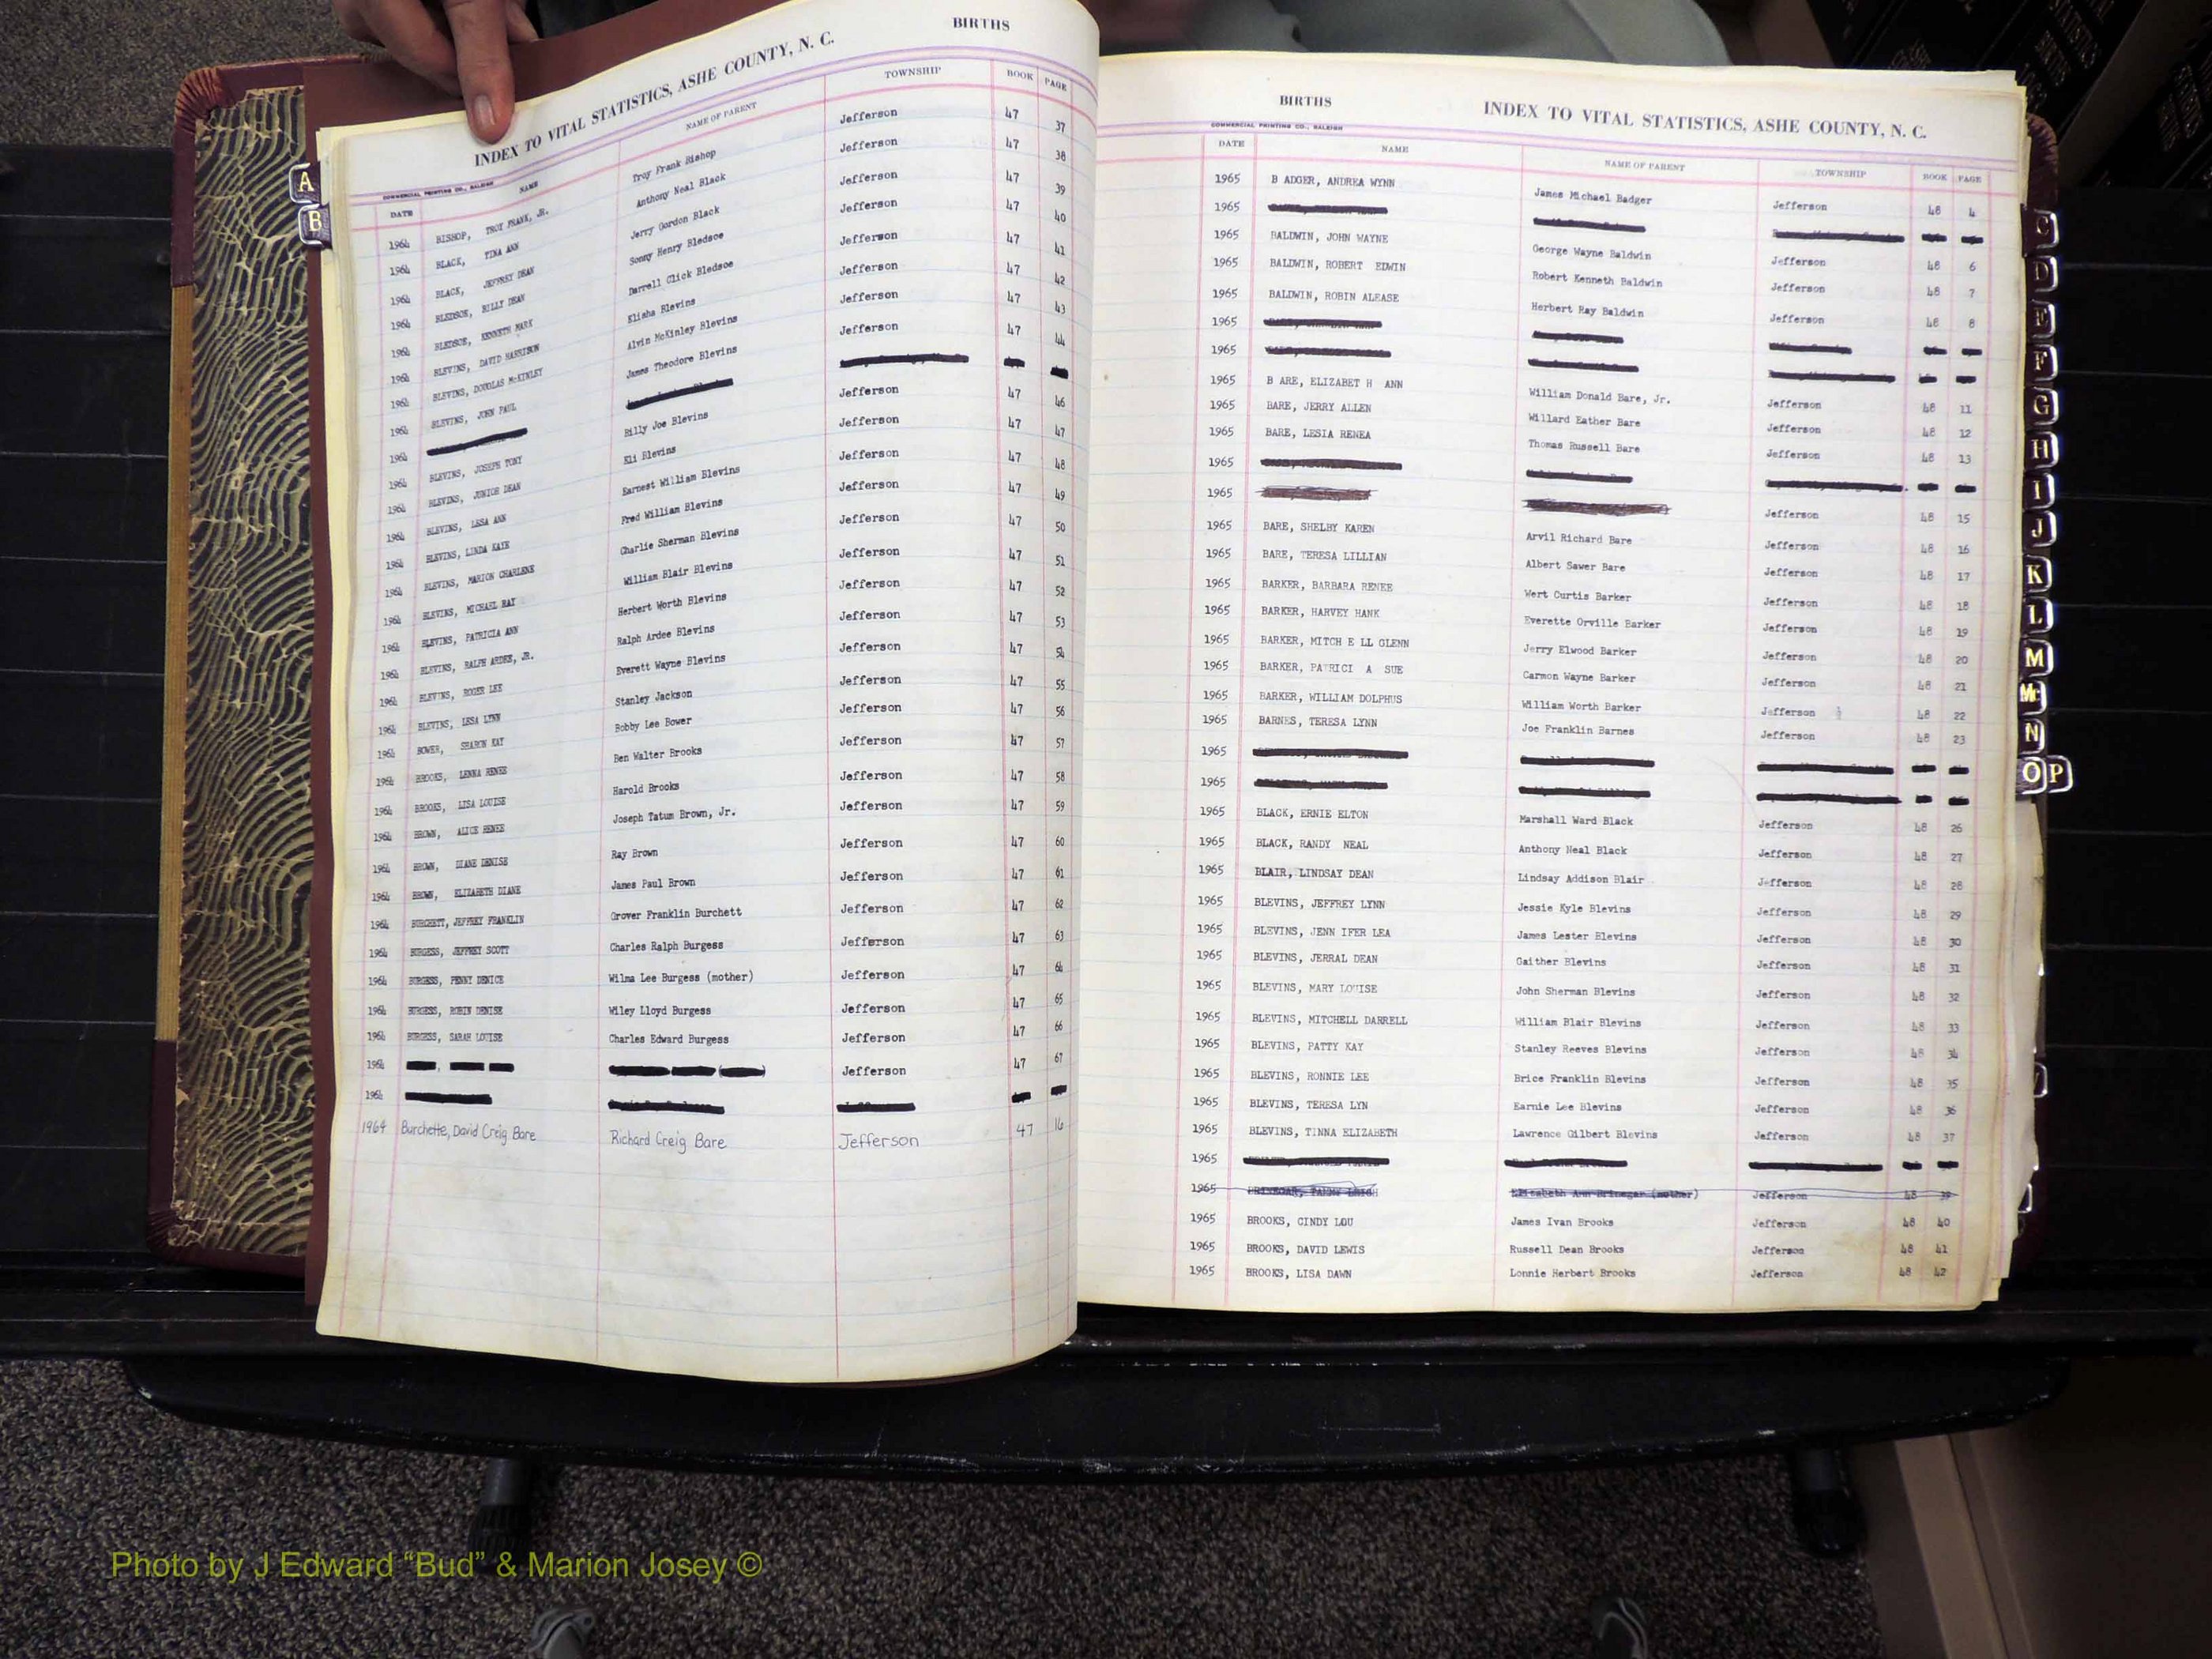 BIRTHS
INDEX TO VITAL STATISTICS, ASHE COUNTY, N. C.
COMMERCIAL PRINTING CO., RALEIGH
DATE NAME NAME OF PARENT TOWNSHIP BOOK PAGE
1964 BISHOP, TROY FRANK, JR. Troy Frank Bishop Jefferson 47 37
1964 BLACK, TINA ANN Anthony Neal Black Jefferson 47 38
1964 BLACK, JEFFREY DEAN Jerry Gordon Black Jefferson 47 39
1964 BLEDSOE, BILLY DEAN Sonny Henry Bledsoe Jefferson 47 40
1964 BLEDSOE, KENNETH MARK Darrell Click Bledsoe Jefferson 47 41
1964 BLEVINS, DAVID HARRISON Elisha Blevins Jefferson 47 42
1964 BLEVINS, DOUGLAS McKINLEY Alvin McKinley Blevins Jefferson 47 43
1964 BLEVINS, JOHN PAUL James Theodore Blevins Jefferson 47 44
1964
1964 BLEVINS, JOSEPH TONY Billy Joe Blevins Jefferson 47 46
1964 BLEVINS, JUNIOR DEAN Eli Blevins Jefferson 47 47
1964 BLEVINS, LESA ANN Earnest William Blevins Jefferson 47 48
1964 BLEVINS, LINDA KAYE Fred William Blevins Jefferson 47 49
1964 BLEVINS, MARION CHARLENE Charlie Sherman Blevins Jefferson 47 50
1964 BLEVINS, MICHAEL RAY William Blair Blevins Jefferson 47 51
1964 BLEVINS, PATRICIA ANN Herbert Worth Blevins Jefferson 47 52
1964 BLEVINS, RALPH ARDEE, JR. Ralph Ardee Blevins Jefferson 47 53
1964 BLEVINS, ROGER LEE Everett Wayne Blevins Jefferson 47 54
1964 BLEVINS, LESA LYNN Stanley Jackson Jefferson 47 55
1964 BOWER, SHARON KAY Bobby Lee Bower Jefferson 47 56
1964 BROOKS, LENNA RENEE Ben Walter Brooks Jefferson 47 57
1964 BROOKS, LISA LOUISE Harold Brooks Jefferson 47 58
1964 BROWN, ALICE RENEE Joseph Tatum Brown, Jr. Jefferson 47 59
1964 BROWN, DIANE DENISE Ray Brown Jefferson 47 60
1964 BROWN, ELIZABETH DIANE James Paul Brown Jefferson 47 61
1964 BURCHETT, JEFFREY FRANKLIN Grover Franklin Burchett Jefferson 47 62
1964 BURGESS, JEFFREY SCOTT Charles Ralph Burgess Jefferson 47 63
1964 BURGESS, PENNY DENICE Wilma Lee Burgess (mother) Jefferson 47 64
1964 BURGESS, ROBIN DENISE Wiley Lloyd Burgess Jefferson 47 65
1964 BURGESS, SARAH LOUISE Charles Edward Burgess Jefferson 47 66
1964 Jefferson 47 67
1964
1964 Burchette, David Creig Bare Richard Creig Bare Jefferson 47 16
A
B
BIRTHS
INDEX TO VITAL STATISTICS, ASHE COUNTY, N. C.
COMMERCIAL PRINTING CO., RALEIGH
DATE NAME NAME OF PARENT TOWNSHIP BOOK PAGE
1965 B ADGER, ANDREA WYNN James Michael Badger Jefferson 48 4
1965
1965 BALDWIN, JOHN WAYNE George Wayne Baldwin Jefferson 48 6
1965 BALDWIN, ROBERT EDWIN Robert Kenneth Baldwin Jefferson 48 7
1965 BALDWIN, ROBIN ALEASE Herbert Ray Baldwin Jefferson 48 8
1965
1965
1965 B ARE, ELIZABET H ANN William Donald Bare, Jr. Jefferson 48 11
1965 BARE, JERRY ALLEN Willard Eather Bare Jefferson 48 12
1965 BARE, LESIA RENEA Thomas Russell Bare Jefferson 48 13
1965
1965 Jefferson 48 15
1965 BARE, SHELBY KAREN Arvil Richard Bare Jefferson 48 16
1965 BARE, TERESA LILLIAN Albert Sawer Bare Jefferson 48 17
1965 BARKER, BARBARA RENEE Wert Curtis Barker Jefferson 48 18
1965 BARKER, HARVEY HANK Everette Orville Barker Jefferson 48 19
1965 BARKER, MITCH E LL GLENN Jerry Elwood Barker Jefferson 48 20
1965 BARKER, PATRICI A SUE Carmon Wayne Barker Jefferson 48 21
1965 BARKER, WILLIAM DOLPHUS William Worth Barker Jefferson 48 22
1965 BARNES, TERESA LYNN Joe Franklin Barnes Jefferson 48 23
1965
1965
1965 BLACK, ERNIE ELTON Marshall Ward Black Jefferson 48 26
1965 BLACK, RANDY NEAL Anthony Neal Black Jefferson 48 27
1965 BLAIR, LINDSAY DEAN Lindsay Addison Blair Jefferson 48 28
1965 BLEVINS, JEFFREY LYNN Jessie Kyle Blevins Jefferson 48 29
1965 BLEVINS, JENN IFER LEA James Lester Blevins Jefferson 48 30
1965 BLEVINS, JERRAL DEAN Gaither Blevins Jefferson 48 31
1965 BLEVINS, MARY LOUISE John Sherman Blevins Jefferson 48 32
1965 BLEVINS, MITCHELL DARRELL William Blair Blevins Jefferson 48 33
1965 BLEVINS, PATTY KAY Stanley Reeves Blevins Jefferson 48 34
1965 BLEVINS, RONNIE LEE Brice Franklin Blevins Jefferson 48 35
1965 BLEVINS, TERESA LYN Earnie Lee Blevins Jefferson 48 36
1965 BLEVINS, TINNA ELIZABETH Lawrence Gilbert Blevins Jefferson 48 37
1965
1965 Elizabeth Ann Brinegar (mother) Jefferson 48 39
1965 BROOKS, CINDY LOU James Ivan Brooks Jefferson 48 40
1965 BROOKS, DAVID LEWIS Russell Dean Brooks Jefferson 48 41
1965 BROOKS, LISA DAWN Lonnie Herbert Brooks Jefferson 48 42
C
D
E
F
G
H
I
J
K
L
M
Mc
N
O P
Photo by J Edward “Bud” & Marion Josey ©